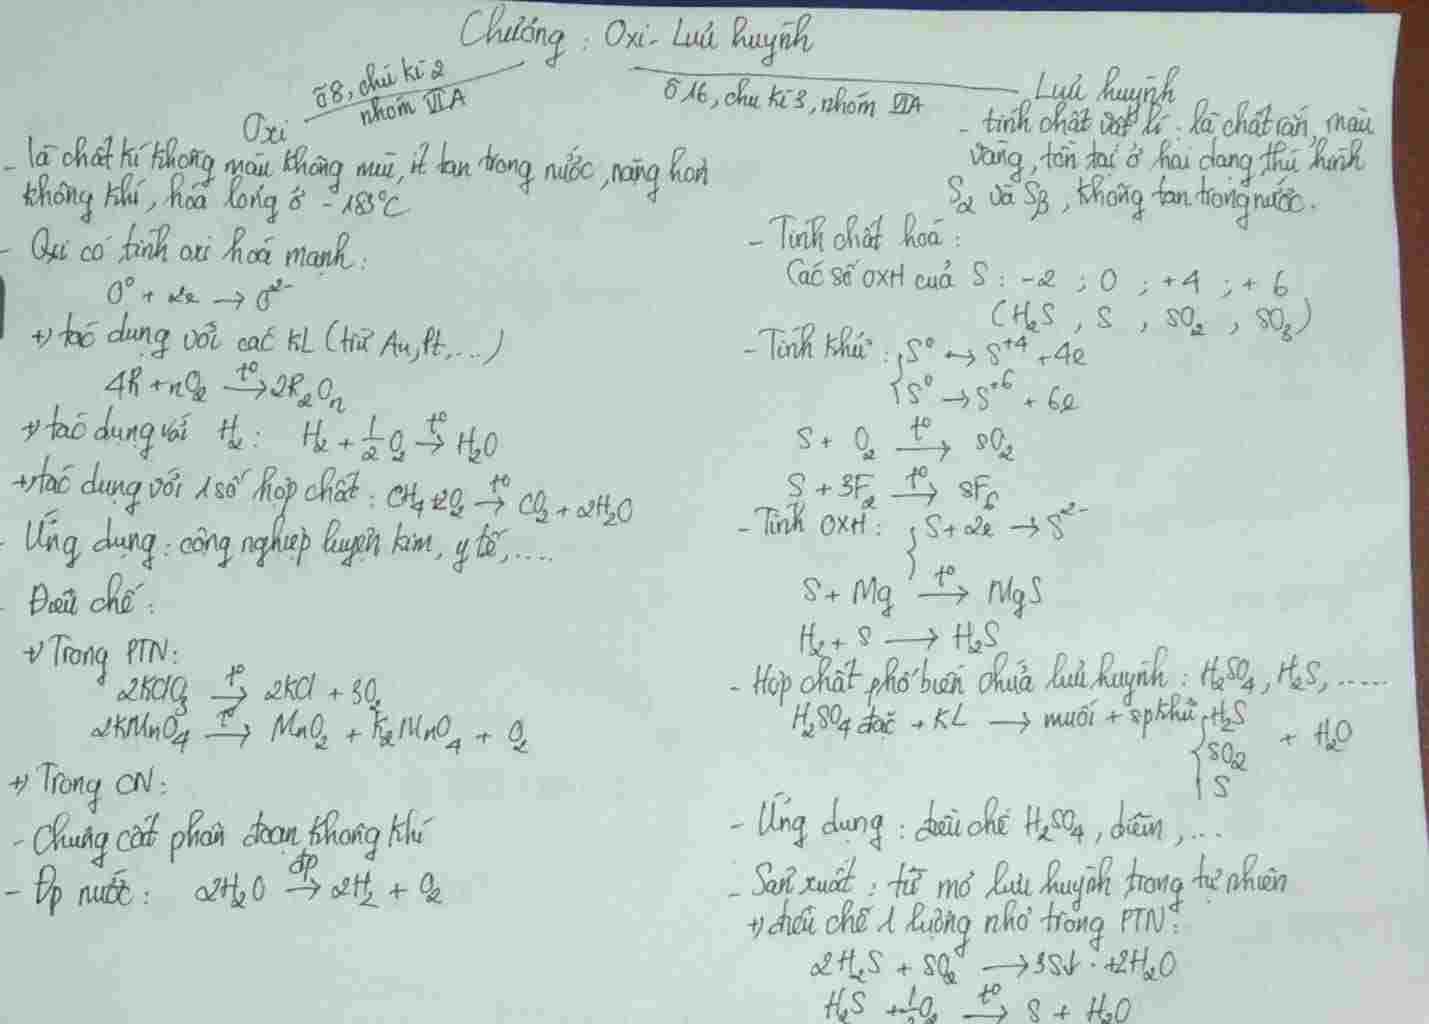 Chương : Oxi - Lưu huỳnh
ô 8, chu kì 2
nhóm VIA
Oxi
- là chất kí không màu không mùi, ít tan trong nước, nặng hơn
không khí, hoá lỏng ở -183°C
- Oxi có tính oxi hoá mạnh :
O⁰ + 2e → O²⁻
+) tác dụng với các KL (trừ Au, Pt, ...)
4R + nO₂ →(t⁰) 2R₂Oₙ
+) tác dụng với H₂ : H₂ + 1/2 O₂ →(t⁰) H₂O
+) tác dụng với 1 số hợp chất : CH₄ + 2O₂ →(t⁰) CO₂ + 2H₂O
- Ứng dụng : công nghiệp luyện kim, y tế, ....
- Điều chế :
+) Trong PTN :
2KClO₃ →(t⁰) 2KCl + 3O₂
2KMnO₄ →(t⁰) MnO₂ + K₂MnO₄ + O₂
+) Trong CN :
- Chưng cất phân đoạn không khí
- Đp nước : 2H₂O →(đp) 2H₂ + O₂
ô 16, chu kì 3, nhóm VIA
Lưu huỳnh
- tính chất vật lí : là chất rắn, màu
vàng, tồn tại ở hai dạng thù hình
Sα và Sβ, không tan trong nước.
- Tính chất hoá :
Các số OXH của S : -2 ; 0 ; +4 ; +6
(H₂S , S , SO₂ , SO₃)
- Tính khử : { S⁰ → S⁺⁴ + 4e
S⁰ → S⁺⁶ + 6e
S + O₂ →(t⁰) SO₂
S + 3F₂ →(t⁰) SF₆
- Tính OXH : { S + 2e → S²⁻
S + Mg →(t⁰) MgS
H₂ + S → H₂S
- Hợp chất phổ biến chứa lưu huỳnh : H₂SO₄, H₂S, .....
H₂SO₄ đặc + KL → muối + sp khử { H₂S
SO₂ + H₂O
S
- Ứng dụng : điều chế H₂SO₄, diêm, ...
- Sản xuất : từ mỏ lưu huỳnh trong tự nhiên
+) điều chế 1 lượng nhỏ trong PTN :
2H₂S + SO₂ → 3S↓ + 2H₂O
H₂S + 1/2 O₂ →(t⁰) S + H₂O